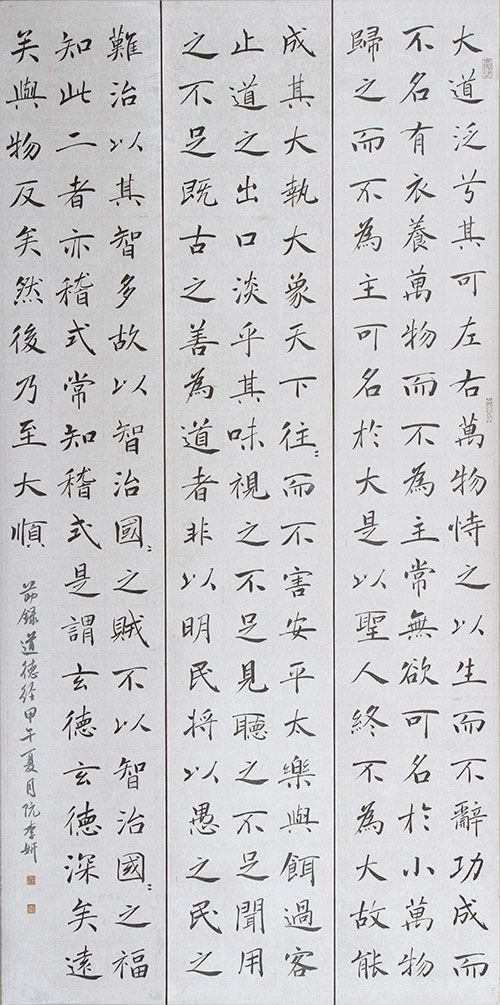 大道泛兮其可左右萬物恃之以生而不辭功成而
不名有衣養萬物而不為主常無欲可名於小萬物
歸之而不為主可名於大是以聖人終不為大故能
成其大執大象天下往〻而不害安平太樂與餌過客
止道之出口淡乎其味視之不足見聽之不足聞用
之不足既古之善為道者非以明民將以愚之民之
難治以其智多故以智治國〻之賊不以智治國〻之福
知此二者亦稽式常知稽式是謂玄德玄德深矣遠
矣與物反矣然後乃至大順
節錄道德經甲午夏月阮李妍